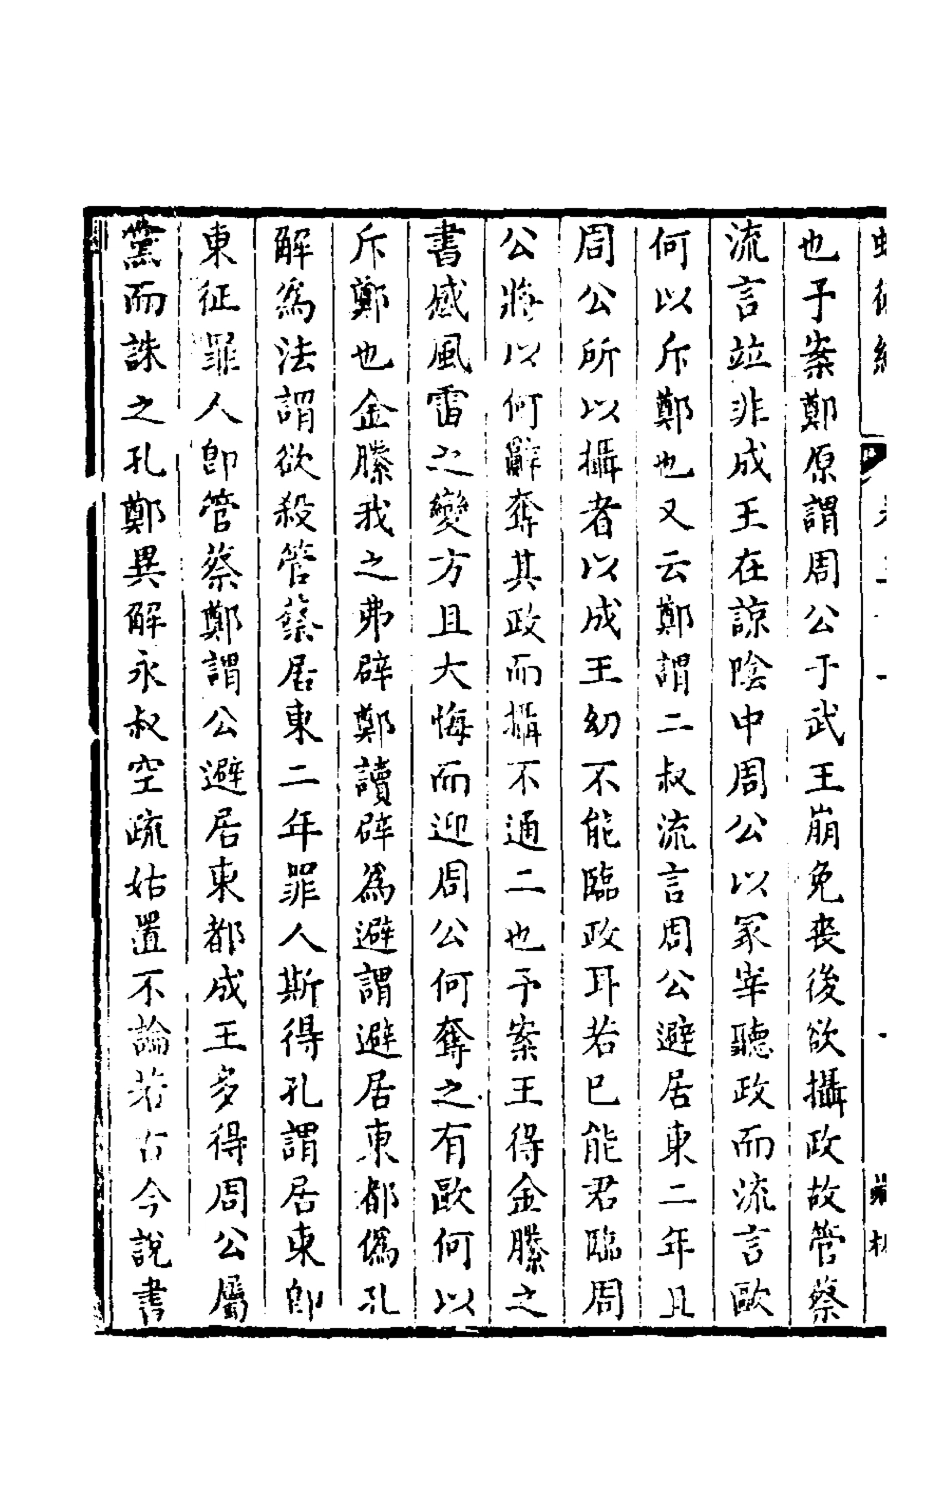 也予案鄭原謂周公于武王崩免喪後欲攝政故管蔡
流言竝非成王在諒陰中周公以冢宰聽政而流言歐
何以斥鄭也又云鄭謂二叔流言周公避居東二年且
周公所以攝者以成王幼不能臨政耳若已能君臨周
公將以何辭奪其政而攝不通二也予案王得金縢之
書感風雷之變方且大悔而迎周公何奪之有歐何以
斥鄭也金縢我之弗辟鄭讀辟為避謂避居東都僞孔
解為法謂欲殺管蔡居東二年罪人斯得孔謂居東卽
東征罪人卽管蔡鄭謂公避居東都成王多得周公屬
黨而誅之孔鄭異解永叔空疏姑置不論若古今說書